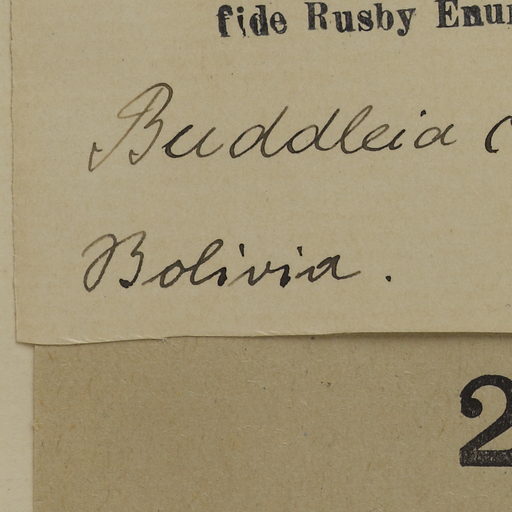 fide Rusby Enu
Buddleia
Bolivia.
2